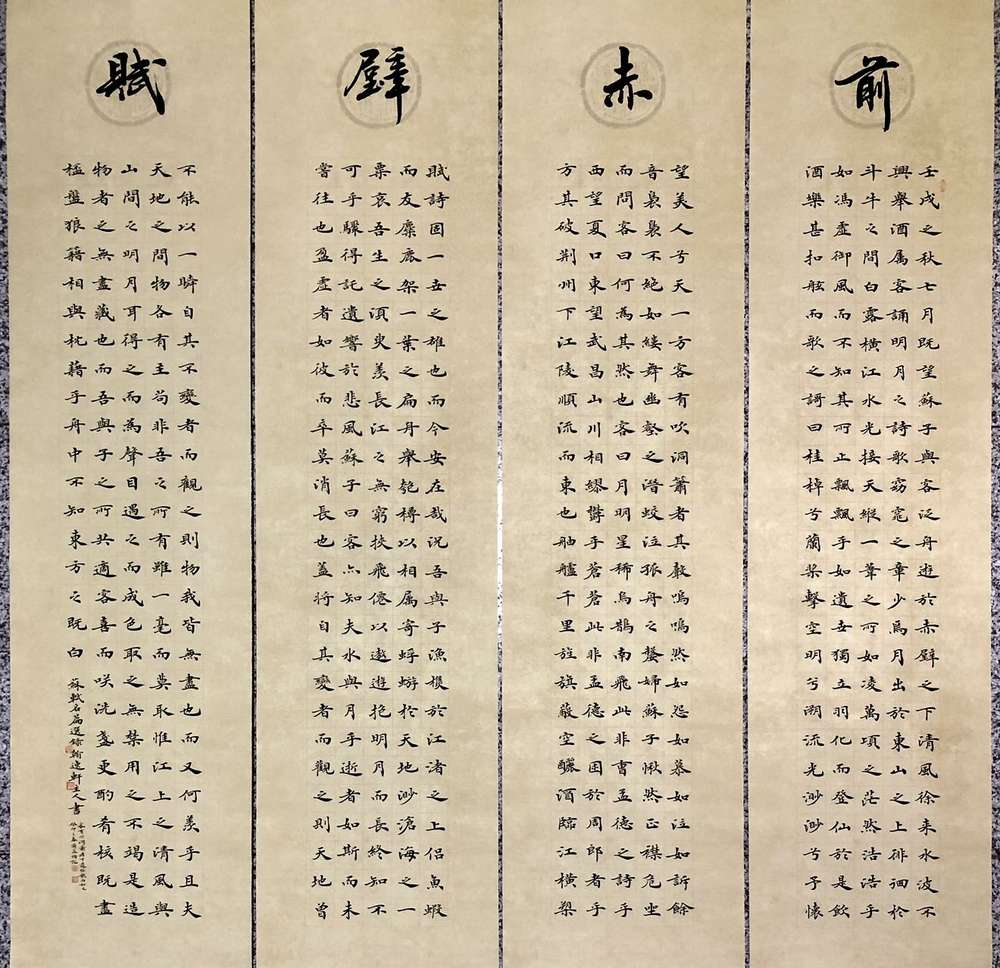 前
赤
壁
賦
壬戌之秋七月既望蘇子與客泛舟遊於赤壁之下清風徐来水波不
興舉酒属客誦明月之詩歌窈窕之章少焉月出於東山之上徘徊於
斗牛之間白露橫江水光接天縱一葦之所如凌萬頃之茫然浩浩乎
如馮虛御風而不知其所止飄飄乎如遺世獨立羽化而登仙於是飲
酒樂甚扣舷而歌之謌曰桂棹兮蘭槳擊空明兮溯流光渺渺兮予懷
望美人兮天一方客有吹洞簫者其聲嗚嗚然如怨如慕如泣如訴餘
音裊裊不絶如縷舞幽壑之潛蛟泣孤舟之嫠婦蘇子愀然正襟危坐
而問客曰何為其然也客曰月明星稀烏鵲南飛此非曹孟德之詩乎
西望夏口東望武昌山川相繆欝乎蒼蒼此非孟德之困於周郎者乎
方其破荆州下江陵順流而東也舳艫千里旌旗蔽空釃酒臨江橫槊
賦詩固一世之雄也而今安在哉況吾與子漁樵於江渚之上侶魚蝦
而友麋鹿架一葉之扁舟舉匏樽以相属寄蜉蝣於天地渺滄海之一
粟哀吾生之須臾羨長江之無窮挾飛僊以遨遊抱明月而長終知不
可乎驟得託遺響於悲風蘇子曰客亦知夫水與月乎逝者如斯而未
嘗往也盈虛者如彼而卒莫消長也蓋將自其變者而觀之則天地曾
不能以一瞬自其不變者而觀之則物我皆無盡也而又何羨乎且夫
天地之間物各有主苟非吾之所有雖一毫而莫取惟江上之清風與
山間之明月耳得之而為聲目遇之而成色取之無禁用之不竭是造
物者之無盡藏也而吾與子之所共適客喜而咲洗盞更酌肴核既盡
楹盤狼籍相與枕藉乎舟中不知東方之既白
蘇軾名篇選錄翰逸軒主人書